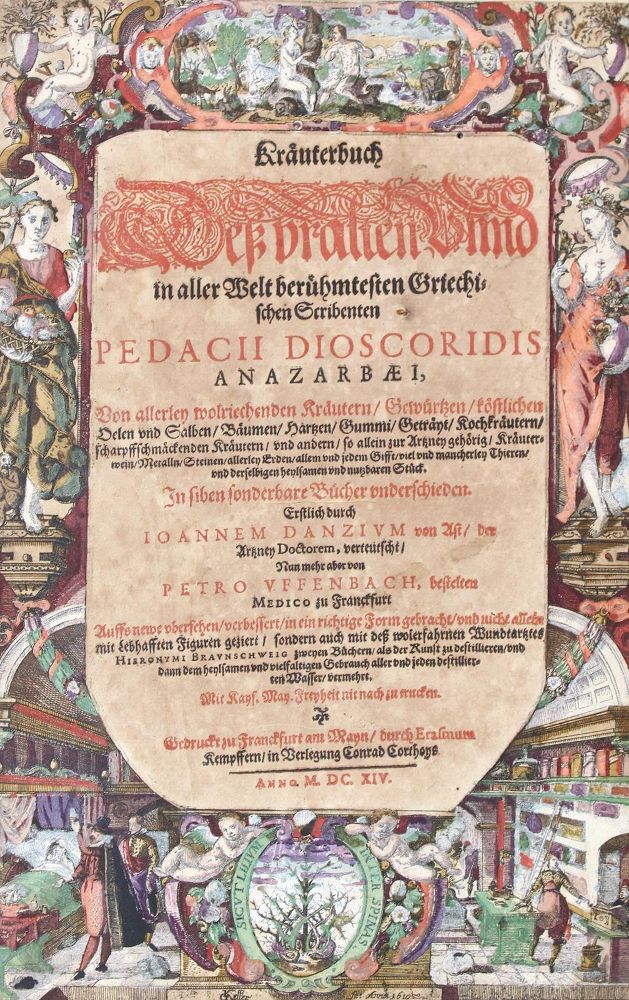 Kräuterbuch
Deß vralten Vnnd
in aller Welt berühmtesten Griechi-
schen Scribenten
PEDACII DIOSCORIDIS
ANAZARBÆI,
Von allerley wolriechenden Kräutern / Gewürtzen / köstlichen
Oelen vnd Salben / Bäumen / Hartzen / Gummi / Geträyt / Kochkräutern /
scharpffschmäckenden Kräutern / vnd andern / so allein zur Artzney gehörig / Kräuter-
wein / Metalln / Steinen / allerley Erden / allem vnd jedem Gifft / viel vnd mancherley Thieren /
vnd derselbigen heylsamen vnd nutzbaren Stück.
In siben sonderbare Bücher vnderschieden.
Erstlich durch
IOANNEM DANZIVM von Ast / der
Artzney Doctorem, verteutscht /
Nun mehr aber von
PETRO VFFENBACH, bestelten
MEDICO zu Franckfurt
Auffs newe vbersehen / verbessert / in ein richtige Form gebracht / vnd nicht allein
mit lebhafften Figuren gezieret / sondern auch mit deß wolerfahrnen Wundartztes
HIERONYMI BRAVNSCHWEIG zweyen Büchern / als der Kunst zu destillieren / vnd
dann dem heylsamen vnd vielfaltigen Gebrauch aller vnd jeden destillier-
ten Wasser / vermehrt.
Mit Kays. May. Freyheit nit nach zu trucken.
Gedruckt zu Franckfurt am Mayn / durch Erasmum
Kempffern / in Verlegung Conrad Corthoys
ANNO M. DC. XIV.
SICVT LILIVM INTER SPINAS
Keller fec. 1610